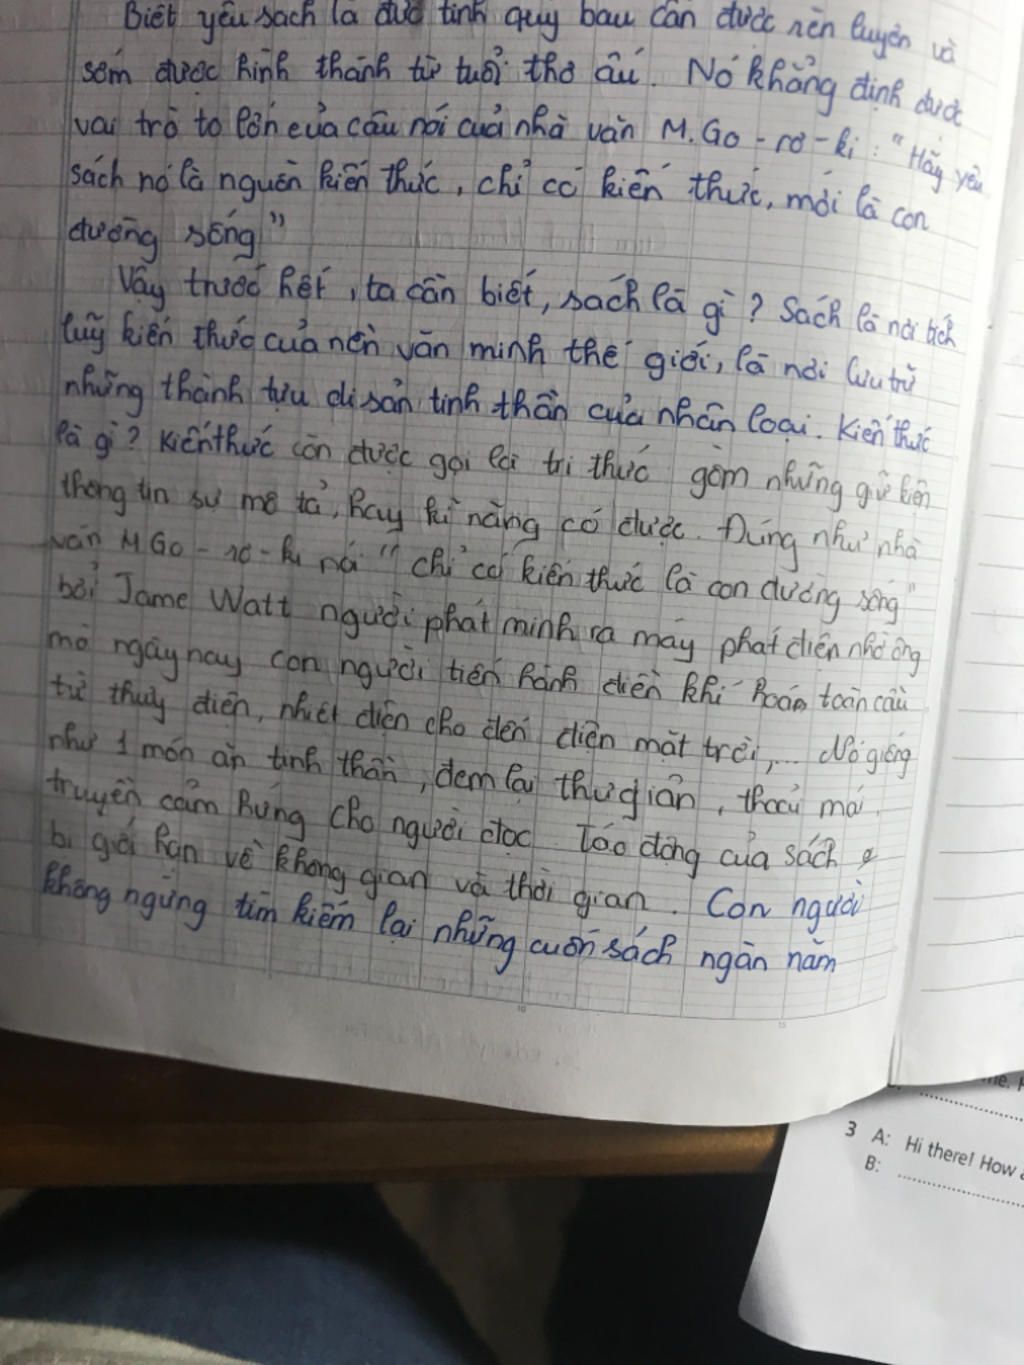 Biết yêu sách là đức tính quý báu cần được rèn luyện và
sớm được hình thành từ tuổi thơ ấu. Nó khẳng định được
vai trò to lớn của câu nói của nhà văn M.Go-rơ-ki: "Hãy yêu
sách nó là nguồn kiến thức, chỉ có kiến thức, mới là con
đường sống"
Vậy trước hết, ta cần biết, sách là gì? Sách là nơi tích
luỹ kiến thức của nền văn minh thế giới, là nơi lưu trữ
những thành tựu di sản tinh thần của nhân loại. Kiến thức
là gì? Kiến thức còn được gọi là tri thức gồm những giữ kiện
thông tin sự mô tả, hay kĩ năng có được. Đúng như nhà
văn M Go-rơ-ki nói "chỉ có kiến thức là con đường sống"
bởi Jame Watt người phát minh ra máy phát điện nhờ ông
mà ngày nay con người tiến hành điện khí hoá toàn cầu
từ thuỷ điện, nhiệt điện cho đến điện mặt trời,... Nó giống
như 1 món ăn tinh thần, đem lại thư giản, thoải mái.
truyền cảm hứng cho người đọc Tác động của sách
bị giới hạn về không gian và thời gian. Con người
không ngừng tìm kiếm lại những cuốn sách ngàn năm
3 A: Hi there! How
B: